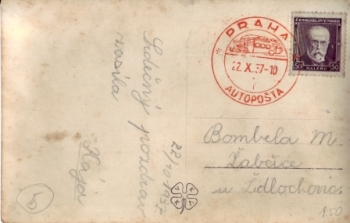 PRAHA
22.X.37-10
AUTOPOŠTA
ČESKOSLOVENSKO
50 50
HALÉŘŮ
Srdečný pozdrav
zasílá
Kája
22/10 1937
Bombela M.
Žabčice
u Židlochovic
150